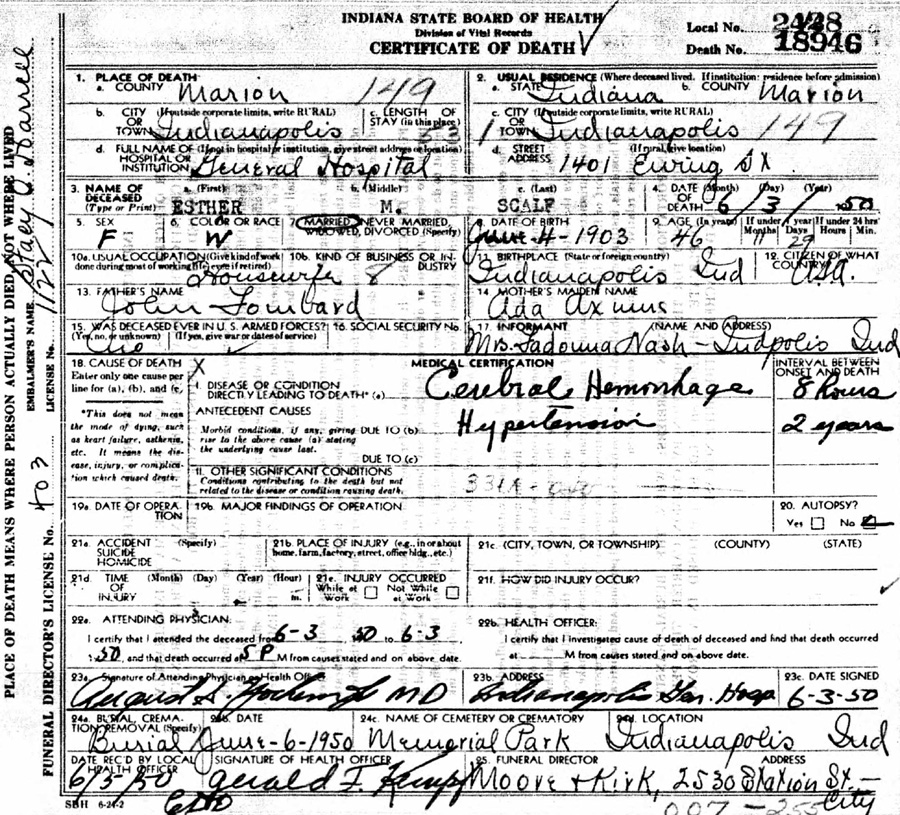 INDIANA STATE BOARD OF HEALTH
Division of Vital Records
CERTIFICATE OF DEATH
Local No.
Death No. 18946
1. PLACE OF DEATH
a. COUNTY Marion 149
b. CITY (If outside corporate limits, write RURAL) OR TOWN Indianapolis
c. LENGTH OF STAY (in this place) 53
d. FULL NAME OF (If not in hospital or institution, give street address or location) HOSPITAL OR INSTITUTION General Hospital
2. USUAL RESIDENCE (Where deceased lived. If institution: residence before admission)
a. STATE Indiana b. COUNTY Marion
c. CITY (If outside corporate limits, write RURAL) OR TOWN Indianapolis 149
d. STREET ADDRESS (If rural, give location) 1401 Ewing St
3. NAME OF DECEASED (Type or Print) a. (First) ESTHER b. (Middle) M. c. (Last) SCALF
4. DATE OF DEATH (Month) (Day) (Year) 6/3/1950
5. SEX F
6. COLOR OR RACE W
7. MARRIED, NEVER MARRIED, WIDOWED, DIVORCED (Specify)
8. DATE OF BIRTH June-4-1903
9. AGE (In years) 46 If under 1 year Months 11 Days 29 If under 24 hrs Hours Min.
10a. USUAL OCCUPATION (Give kind of work done during most of working life, even if retired) Housewife
10b. KIND OF BUSINESS OR INDUSTRY 8
11. BIRTHPLACE (State or foreign country) Indianapolis Ind
12. CITIZEN OF WHAT COUNTRY? USA.
13. FATHER'S NAME John Lombard
14. MOTHER'S MAIDEN NAME Ada
15. WAS DECEASED EVER IN U. S. ARMED FORCES? (Yes, no, or unknown) (If yes, give war or dates of service)
16. SOCIAL SECURITY No.
17. INFORMANT (NAME AND ADDRESS)
Mrs. Ladonna Nash - Indpolis Ind
18. CAUSE OF DEATH
Enter only one cause per line for (a), (b), and (c).
*This does not mean the mode of dying, such as heart failure, asthenia, etc. It means the disease, injury, or complication which caused death.
MEDICAL CERTIFICATION
INTERVAL BETWEEN ONSET AND DEATH
I. DISEASE OR CONDITION DIRECTLY LEADING TO DEATH* (a) Cerebral Hemorrhage 8 hours
ANTECEDENT CAUSES
Morbid conditions, if any, giving rise to the above cause (a) stating the underlying cause last.
DUE TO (b) Hypertension 2 years
DUE TO (c)
II. OTHER SIGNIFICANT CONDITIONS
Conditions contributing to the death but not related to the disease or condition causing death.
19a. DATE OF OPERATION
19b. MAJOR FINDINGS OF OPERATION
20. AUTOPSY?
Yes No
21a. ACCIDENT SUICIDE HOMICIDE (Specify)
21b. PLACE OF INJURY (e.g., in or about home, farm, factory, street, office bldg., etc.)
21c. (CITY, TOWN, OR TOWNSHIP) (COUNTY) (STATE)
21d. TIME OF INJURY (Month) (Day) (Year) (Hour) m.
21e. INJURY OCCURRED While at Work Not While at Work
21f. HOW DID INJURY OCCUR?
22a. ATTENDING PHYSICIAN:
I certify that I attended the deceased from 6-3 1950 to 6-3
1950, and that death occurred at 5 P M from causes stated and on above date.
22b. HEALTH OFFICER:
I certify that I investigated cause of death of deceased and find that death occurred
at M from causes stated and on above date.
23a. Signature of Attending Physician or Health Officer
August MD
23b. ADDRESS Indianapolis Gen. Hosp
23c. DATE SIGNED 6-3-50
24a. BURIAL, CREMATION, REMOVAL (Specify) Burial
24b. DATE June-6-1950
24c. NAME OF CEMETERY OR CREMATORY Memorial Park
24d. LOCATION Indianapolis Ind
DATE REC'D BY LOCAL HEALTH OFFICER 6/5/50
SIGNATURE OF HEALTH OFFICER Gerald F. Kempf
25. FUNERAL DIRECTOR ADDRESS
Moore & Kirk, 2530 Station St. - City
SBH 6-24-2
PLACE OF DEATH MEANS WHERE PERSON ACTUALLY DIED, NOT WHERE LIVED
EMBALMER'S NAME
LICENSE No. 1122
FUNERAL DIRECTOR'S LICENSE No. 403